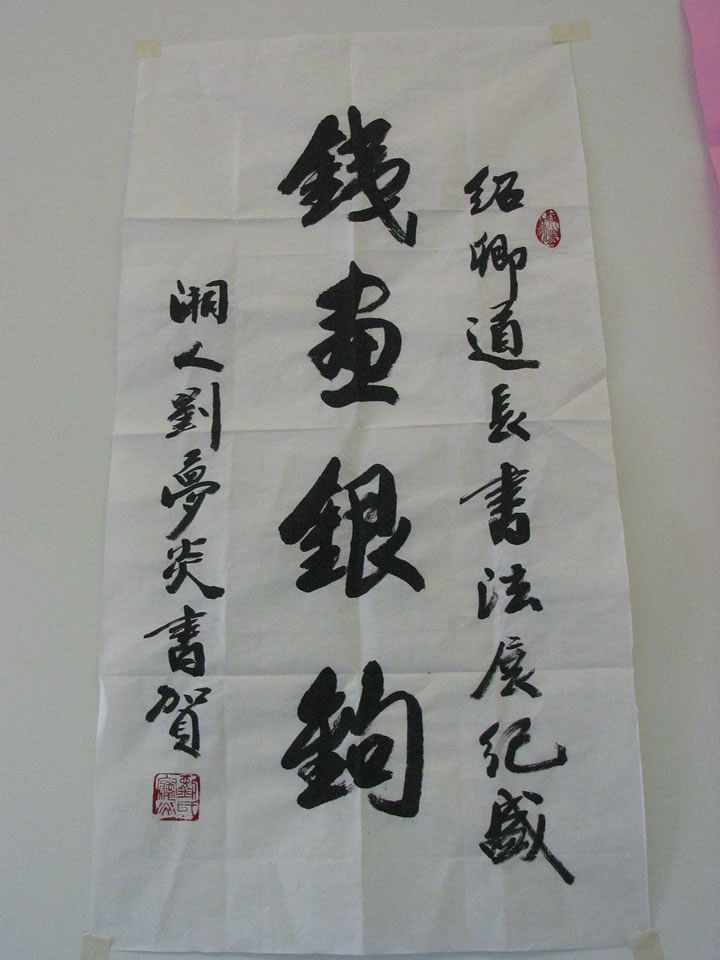 紹卿道長書法展紀盛
銕畫銀鉤
湘人劉夢炎書賀